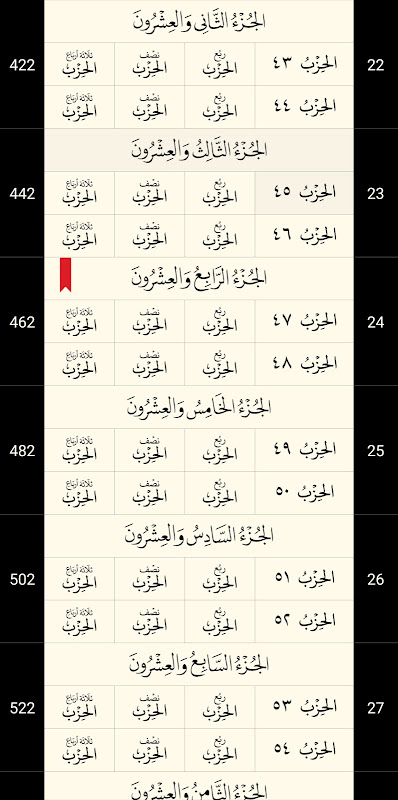 الجُزْءُ الثَّانِي وَالعِشْرُونَ
22 الحِزْبُ ٤٣ رُبْع الحِزْبُ نصْف الحِزْبُ ثلاثة أرباع الحِزْبُ 422
الحِزْبُ ٤٤ رُبْع الحِزْبُ نصْف الحِزْبُ ثلاثة أرباع الحِزْبُ
الجُزْءُ الثَّالِثُ وَالعِشْرُونَ
23 الحِزْبُ ٤٥ رُبْع الحِزْبُ نصْف الحِزْبُ ثلاثة أرباع الحِزْبُ 442
الحِزْبُ ٤٦ رُبْع الحِزْبُ نصْف الحِزْبُ ثلاثة أرباع الحِزْبُ
الجُزْءُ الرَّابِعُ وَالعِشْرُونَ
24 الحِزْبُ ٤٧ رُبْع الحِزْبُ نصْف الحِزْبُ ثلاثة أرباع الحِزْبُ 462
الحِزْبُ ٤٨ رُبْع الحِزْبُ نصْف الحِزْبُ ثلاثة أرباع الحِزْبُ
الجُزْءُ الخَامِسُ وَالعِشْرُونَ
25 الحِزْبُ ٤٩ رُبْع الحِزْبُ نصْف الحِزْبُ ثلاثة أرباع الحِزْبُ 482
الحِزْبُ ٥٠ رُبْع الحِزْبُ نصْف الحِزْبُ ثلاثة أرباع الحِزْبُ
الجُزْءُ السَّادِسُ وَالعِشْرُونَ
26 الحِزْبُ ٥١ رُبْع الحِزْبُ نصْف الحِزْبُ ثلاثة أرباع الحِزْبُ 502
الحِزْبُ ٥٢ رُبْع الحِزْبُ نصْف الحِزْبُ ثلاثة أرباع الحِزْبُ
الجُزْءُ السَّابِعُ وَالعِشْرُونَ
27 الحِزْبُ ٥٣ رُبْع الحِزْبُ نصْف الحِزْبُ ثلاثة أرباع الحِزْبُ 522
الحِزْبُ ٥٤ رُبْع الحِزْبُ نصْف الحِزْبُ ثلاثة أرباع الحِزْبُ
الجُزْءُ الثَّامِنُ وَالعِشْرُونَ